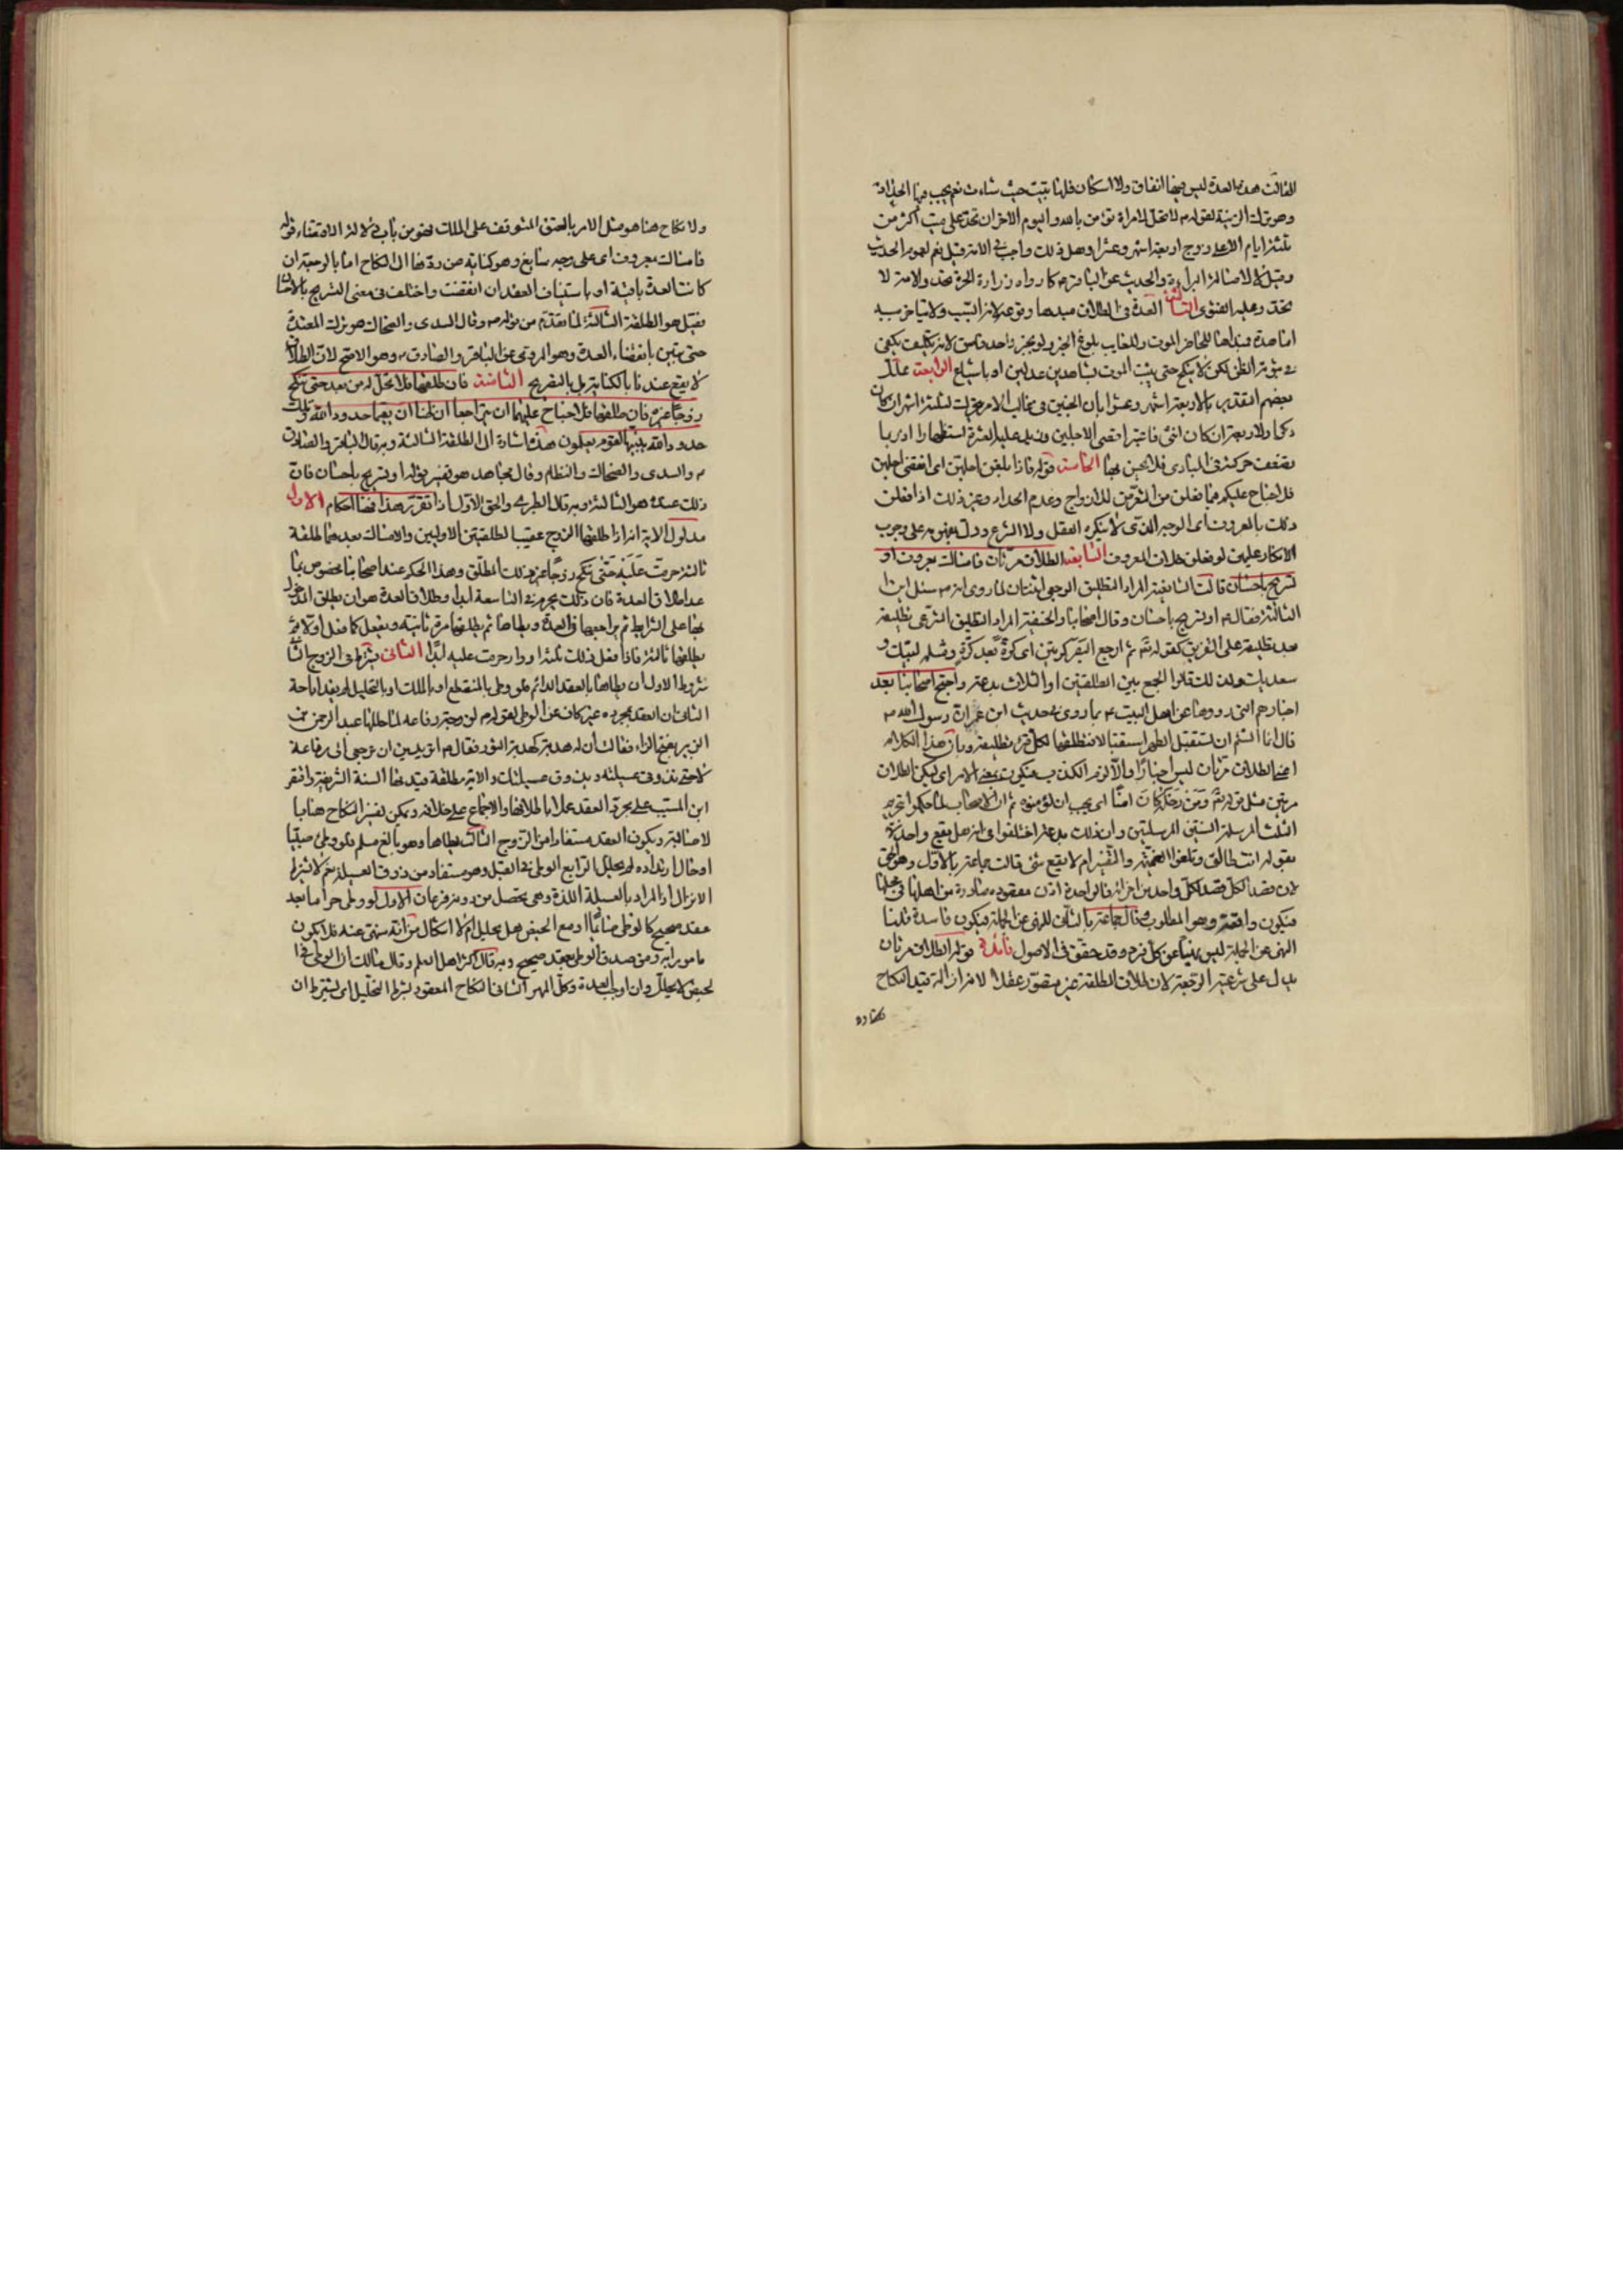 الثالث هذه العدة ليس فيها انفاق ولا اسكان فلها تبيت حيث شاءت نعم يجب فيها الحداد
وهو ترك الزينة لقوله م لا تحل لامراة تؤمن بالله واليوم الاخر ان تحد على ميت اكثر من
ثلثة ايام الا على زوج اربعة اشهر وعشرا وهل ذلك واجب في الامة قيل نعم لعموم الحديث
وقيل لا لاصالة البراءة والحديث عن الباقر ع كما رواه زرارة الحرة تحد والامة لا
تحد وعليه الفتوى الثالث العدة في الطلاق مبدءها وقوعه لانه السبب ولا يتاخر مسببه
اما هذه فمبداها للحاضر الموت وللغايب بلوغ الخبر ولو بخبر واحد فاسق لانه تكليف يكفي
في ثبوته الظن لكن لا ينكح حتى يثبت الموت بشاهدين عدلين او باشياع الرابعة علل
بعضهم التقدير بالاربعة اشهر وعشرا بان الجنين في غالب الامر يتحرك لثلثة اشهر ان كان
ذكرا ولاربعة ان كان انثى فاعتبر اقصى الاجلين وزيد عليه العشرة استظهارا اذ ربما
تضعف حركته في المبادى فلا يحس بها الخامسة قوله فاذا بلغن اجلهن اي انقضى اجلهن
فلا جناح عليكم فيما فعلن من التعرض للازواج وعدم الحداد وغير ذلك اذا فعلن
ذلك بالمعروف اى الوجه الذى لا ينكره العقل ولا الشرع ودل بمفهومه على وجوب
الانكار عليهن لو فعلن خلاف المعروف السابعة الطلاق مرتان فامساك بمعروف او
تسريح باحسان قالت الشافعية المراد التطليق الرجعي اثنتان لما روى انه م سئل اين
الثالثة فقال م او تسريح باحسان وقال اصحابنا والحنفية المراد التطليق الشرعي تطليقة
بعد تطليقة على التفريق كقوله تع ثم ارجع البصر كرتين اى كرة بعد كرة ومثله لبيك و
سعديك ولذلك قالوا الجمع بين الطلقتين او الثلاث بدعة واحتج اصحابنا بعد
اخبارهم التى رووها عن اهل البيت ع بما روى في حديث ابن عمر ان رسول الله م
قال انما السنة ان تستقبل الطهر استقبالا فتطلقها لكل قرء تطليقة وبان هذا الكلام
اعني الطلاق مرتان ليس اخبارا والا لزم الكذب فيكون بمعنى الامر اى ليكن الطلاق
مرتين مثل قوله تع ومن دخله كان امنا اى يجب ان تؤمنوه ثم ان الاصحاب لما حكموا بتحريم
الثلث المرسلة والثنتين المرسلتين وان ذلك بدعة اختلفوا في انه هل يقع واحدة
بقوله انت طالق وتلغوا الضميمة والتفسير ام لا يقع شئ قالت جماعة بالاول وهو الحق
لان قصد الكل قصد لكل واحد من اجزائه فالواحدة اذن مقصودة صادرة من اهلها في محلها
فيكون واقعة وهو المطلوب وقال جماعة بالثاني للنهي عن الجملة فيكون فاسدة قلنا
النهى عن الجملة ليس نهيا عن كل فرد وقد حقق في الاصول فائدة قوله الطلاق مرتان
يدل على شرعية الرجعة لان طلاق المطلقة غير متصور عقلا لانه ازالة قيد النكاح
ولا نكاح هنا هو مثل الامر بالعتق المتوقف على الملك فهو من باب دلالة الاقتضاء قوله
فامساك بمعروف اى على وجه سايغ وهو كناية عن ردها الى النكاح اما بالرجعة ان
كانت العدة باقية او باستيناف العقد ان انقضت واختلف في معنى التسريح بالاحسان
فقيل هو الطلقة الثالثة لما تقدم من قوله م وقال السدى والضحاك هو ترك المعتدة
حتى تبين بانقضاء العدة وهو المروى عن الباقر والصادق ع وهو الاصح لان الطلاق
لا يقع عندنا بالكناية بل بالتصريح الثامنة فان طلقها فلا تحل له من بعد حتى تنكح
زوجا غيره فان طلقها فلا جناح عليهما ان يتراجعا ان ظنا ان يقيما حدود الله وتلك
حدود الله يبينها لقوم يعلمون هذه اشارة الى الطلقة الثالثة وبه قال الباقر والصادق
ع والسدى والضحاك والنظام وقال مجاهد هو تفسير قوله او تسريح باحسان فان
ذلك عنده هو الثالثة وبه قال الطبرى والحق الاول اذا تقرر هذا فهنا احكام الاول
مدلول الاية انه اذا طلقها الزوج عقيب الطلقتين الاوليين والامساك بعدهما طلقة
ثالثة حرمت عليه حتى تنكح زوجا غير ذلك المطلق وهذا الحكم عند اصحابنا مخصوص بما
عدا طلاق العدة فان ذلك يحرم في التاسعة ابدا وطلاق العدة هو ان يطلق المدخول
بها على الشرايط ثم يراجعها في العدة ويطاها ثم يطلقها مرة ثانية ويفعل كما فعل اولا ثم
يطلقها ثالثة فاذا فعل ذلك ثلثة ادوار حرمت عليه ابدا الثانى يشترط في الزوج الثاني
شروط الاول ان يطاها بالعقد الدائم فلو وطئ بالمنقطع او بالملك او بالتحليل لم يفد اباحة
الثاني ان العقد بمجرده غير كاف عن الوطى لقوله م لزوجة رفاعة لما طلقها عبد الرحمن بن
الزبير بفتح الزاء فقالت ان له هدبة كهدبة الثوب فقال م اتريدين ان ترجعى الى رفاعة
لا حتى تذوقى عسيلته ويذوق عسيلتك والاية مطلقة قيدتها السنة الشريفة واقتصر
ابن المسيب على مجرد العقد عملا باطلاقها والاجماع على خلافه ويمكن تفسير النكاح هنا با
لاصابة ويكون العقد مستفادا من الزوج الثالث يطاها وهو بالغ مسلم فلو وطئ صبيا
او حال ارتداده لم يحلل الرابع الوطى في القبل وهو مستفاد من ذوق العسيلة نعم لا يشترط
الانزال اذ المراد بالعسيلة اللذة وهي تحصل من دونه فرعان الاول لو وطى حراما بعد
عقد صحيح كالوطى صائما او مع الحيض هل يحلل ام لا اشكال من انه منهى عنه فلا يكون
مامورا به ومن صدق الوطى بعقد صحيح وبه قال اكثر اهل العلم وقال مالك ان الوطى في ا
لحيض لا يحلل وان اوجب العدة وكل المهر الثانى النكاح المعقود بشرط التحليل اى يشترط ان